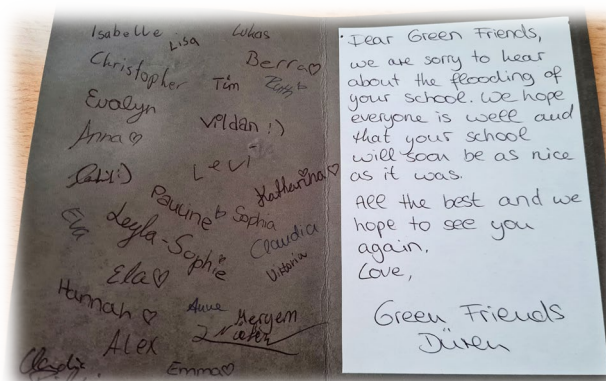 Isabelle
Lukas
Lisa
Christopher
Berra♡
Tim
Ruth
Evalyn
Anna♡
Veldan :)
Levi
Katharina♡
Pauline
Sophia
Eva
Leyla-Sophie
Claudia
Viktoria
Ela♡
Hannah ♡
Anne
Meryem
Alex
Emma♡
Dear Green Friends,
we are sorry to hear
about the flooding of
your school. We hope
everyone is well and
that your school
will soon be as nice
as it was.
All the best and we
hope to see you
again.
Love,
Green Friends
Düren